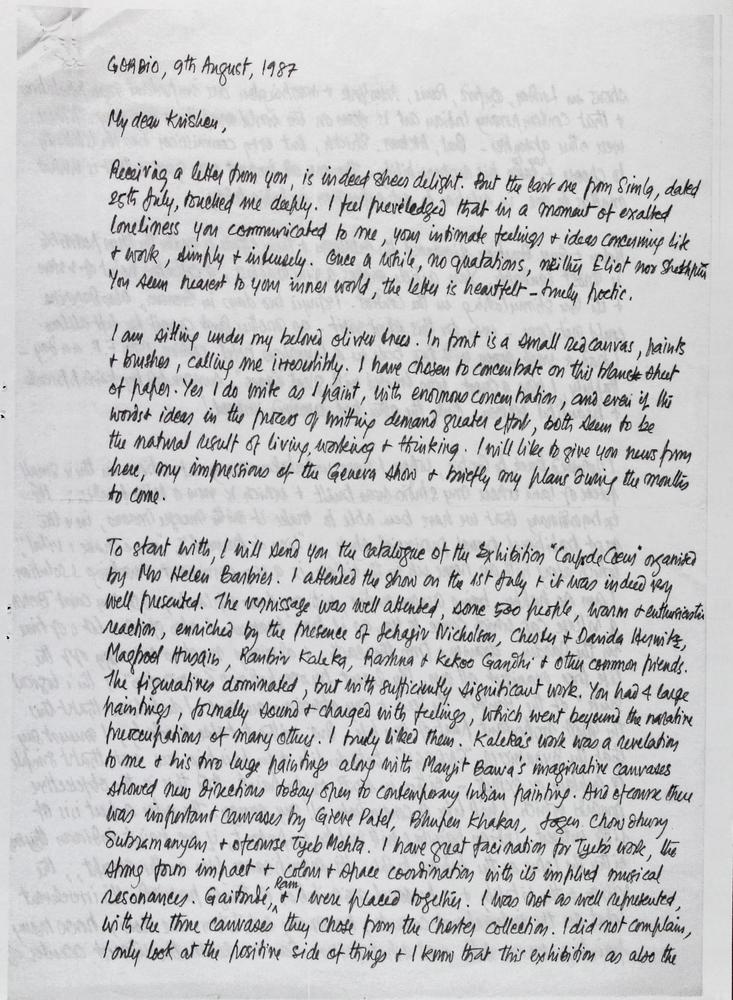 GORBIO, 9th August, 1987
My dear Krishen,
Receiving a letter from you, is indeed sheer delight. But the last one from Simla, dated
25th July, touched me deeply. I feel preveledged that in a moment of exalted
loneliness you communicated to me, your intimate feelings + ideas concerning life
+ work, simply + intensely. Once a while, no quatations, neither Eliot nor
You seem nearest to your inner world, the letter is heartfelt – truely poetic.
I am sitting under my beloved olivier trees. In front is a small red canvas, paints
+ brushes, calling me irresistibly. I have chosen to concentrate on this blank sheet
of paper. Yes I do write as I paint, with enormous concentration, and even if the
words + ideas in the process of writting demand greater effort, both seem to be
the natural result of living, working + thinking. I will like to give you news from
here, my impressions of the Geneva show + briefly my plans during the months
to come.
To start with, I will send you the catalogue of the Exhibition "Coup de Coeur" organised
by Mrs Helen Barbier. I attended the show on the 1st July + it was indeed very
well presented. The vernissage was well attended, some 500 people, warm + enthusiastic
reaction, enriched by the presence of Jehagir Nicholson, Chester + Davida Herwitz,
Maqbool Husain, Ranbir Kaleka, Rashna + Kekoo Gandhi + other common friends.
The figuratives dominated, but with sufficiently significant work. You had 4 large
paintings, formally sound + charged with feelings, which went beyound the narative
preoccupations of many others. I truly liked them. Kaleka's work was a revelation
to me + his two large paintings along with Manjit Bawa's imaginative canvases
showed new directions today open to contemporary Indian painting. And ofcourse there
was important canvases by Gieve Patel, Bhupen Khakar, Jogen Chowdhury
Subramanyan + ofcourse Tyeb Mehta. I have great facination for Tyeb's work, the
strong form impact + colour + space coordination with its implied musical
resonances. Gaitonde, Ram, + I were placed together. I was not as well represented,
with the three canvases they chose from the Chester collection. I did not complain,
I only look at the positive side of things + I know that this exhibition as also the